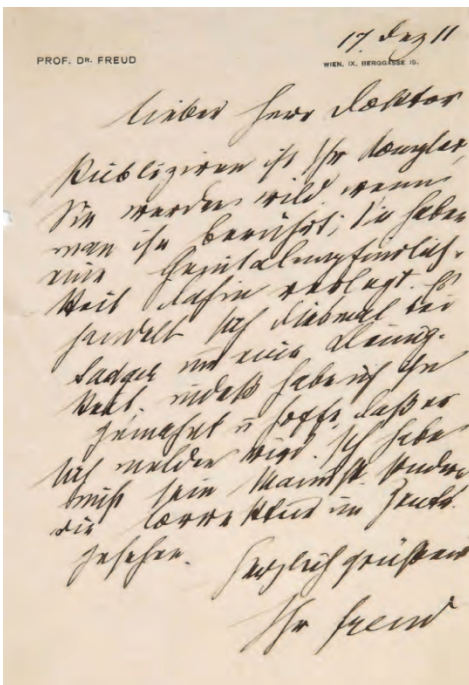 17. Dez 11
PROF. DR. FREUD
WIEN, IX. BERGGASSE 19.
Lieber Herr Doktor
Publiziren ist Ihr Komplex,
Sie werden wild wenn
man ihn berührt; Sie haben
eine Genitalempfindlich-
keit dahin verlegt. Es
handelt sich diesmal bei
Sadger um eine Kleinig-
keit, indeß habe ich ihn
gemahnt u hoffe, daß er
sich melden wird. Ich habe
nicht sein Manuskr. sondern
die Correktur im Zentr.
gesehen.
Herzlich grüßend
Ihr Freud